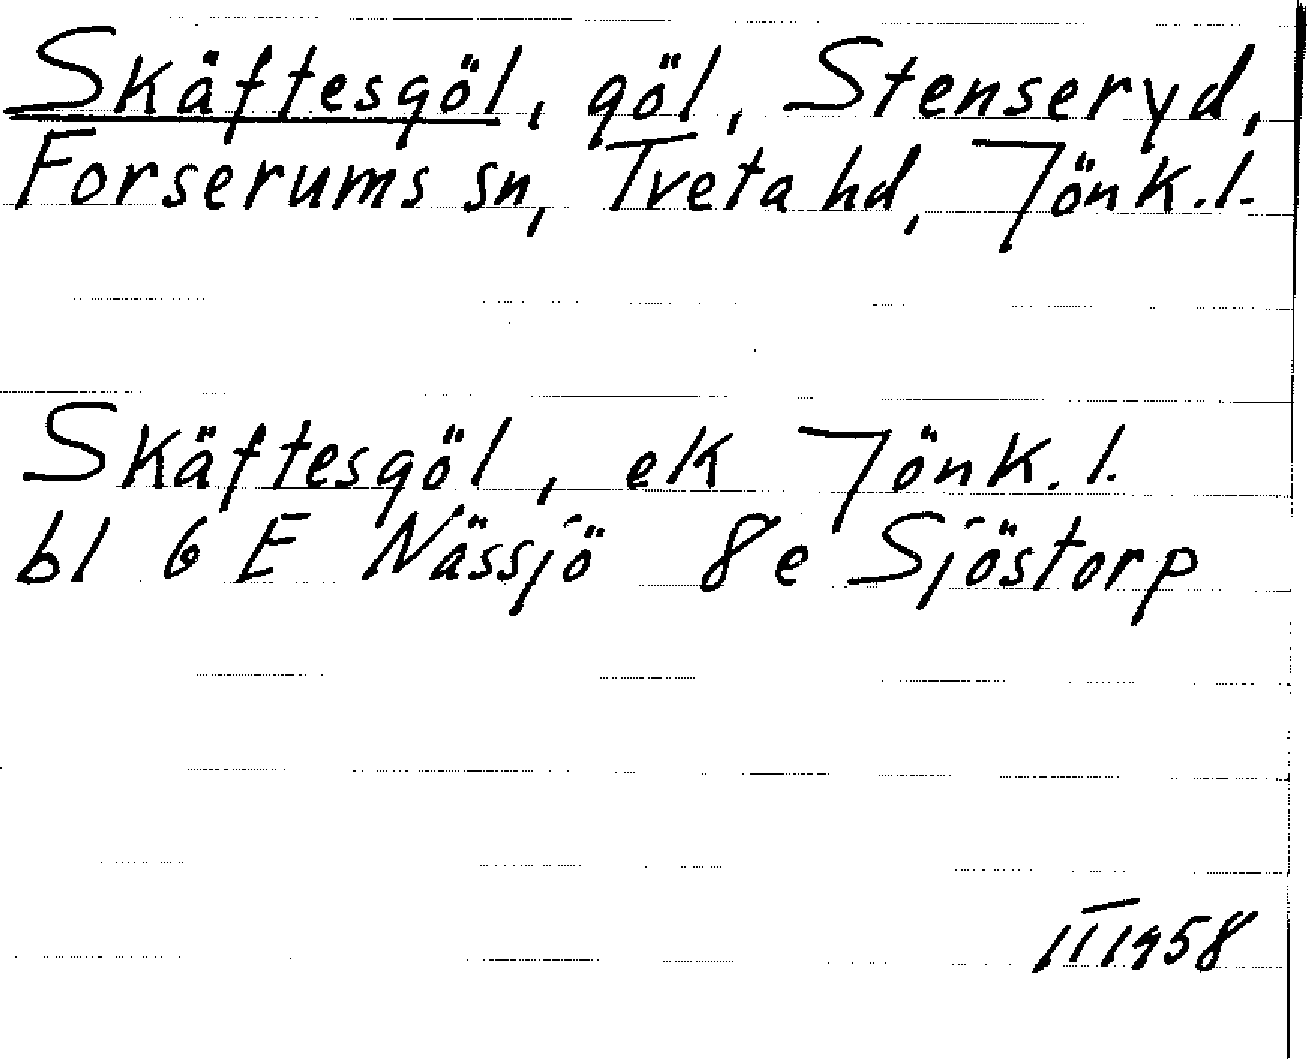 Skäftesgöl, göl, Stenseryd,
Forserums sn, Tveta hd, Jönk.l.
Skäftesgöl, ek Jönk.l.
bl 6 E Nässjö 8e Sjöstorp
III 1958